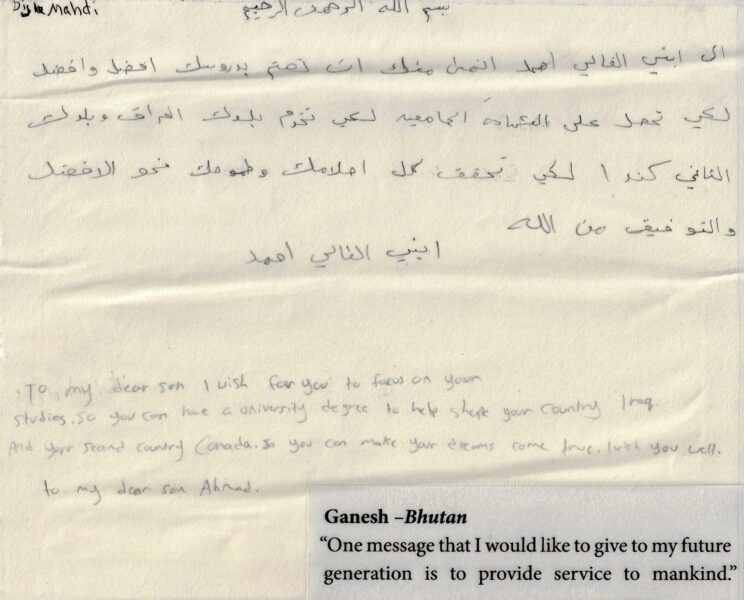 Mahdi
بسم الله الرحمن الرحيم
الى ابني الغالي احمد اتمنى منك ان تهتم بدروسك افضل وافضل
لكي تحصل على الجامعيه لكي تخدم بلدك العراق وبلدك
الثاني كندا لكي تحقق كل احلامك وطموحك نحو الافضل
والتوفيق من الله
ابني الغالي احمد
To my dear son I wish for you to focus on your
studies. so you can have a university degree to help shape your country Iraq.
And your second country Canada. so you can make your dreams come true. I wish you well.
to my dear son Ahmad.
Ganesh –Bhutan
“One message that I would like to give to my future
generation is to provide service to mankind.”